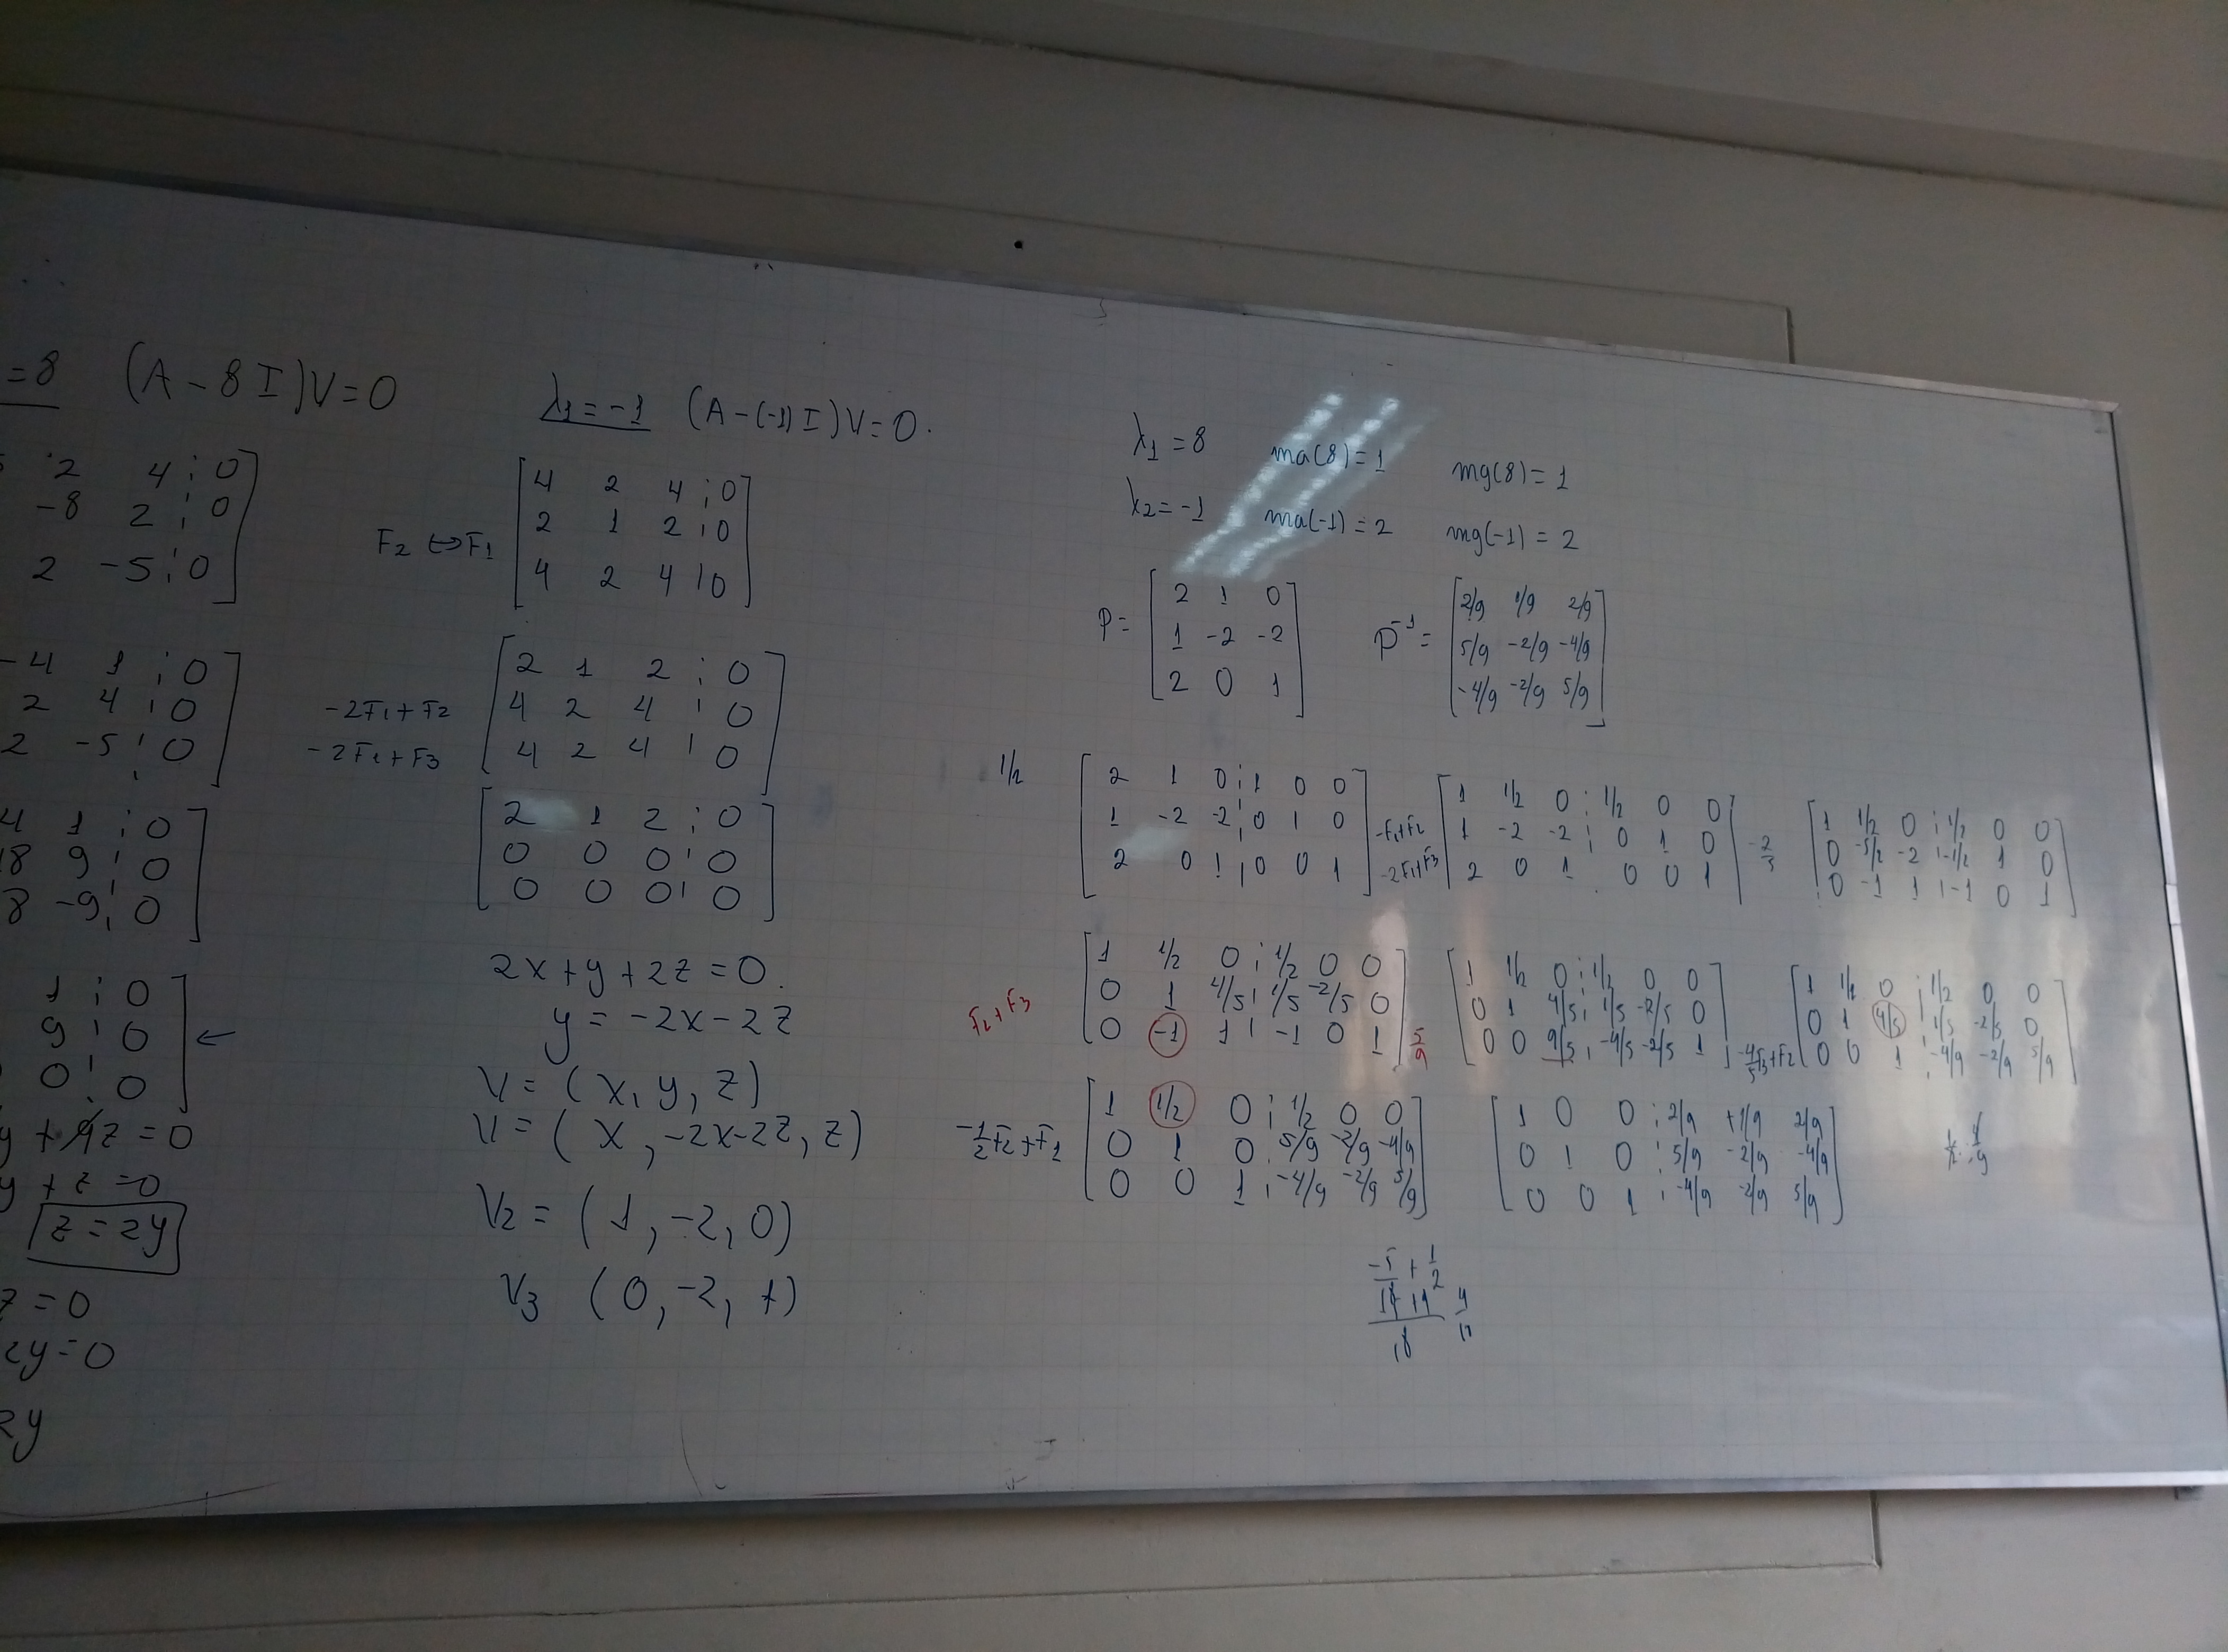 =8 (A - 8I)V=0
2 4 ¦ 0
-8 2 ¦ 0
2 -5 ¦ 0
-4 1 ¦ 0
2 4 ¦ 0
2 -5 ¦ 0
4 1 ¦ 0
18 9 ¦ 0
8 -9 ¦ 0
1 ¦ 0
9 ¦ 0 ←
0 ¦ 0
y + z = 0
z = 2y
z = 0
2y = 0
2y
λ1 = -1 (A-(-1)I)V=0.
F2 ↔ F1
4 2 4 ¦ 0
2 1 2 ¦ 0
4 2 4 ¦ 0
2 1 2 ¦ 0
-2F1+F2 4 2 4 ¦ 0
-2F1+F3 4 2 4 ¦ 0
2 1 2 ¦ 0
0 0 0 ¦ 0
0 0 0 ¦ 0
2x+y+2z=0.
y = -2x-2z
V = (x, y, z)
V = (x, -2x-2z, z)
V2 = (1, -2, 0)
V3 (0, -2, 1)
λ1 = 8 ma(8) = 1 mg(8) = 1
λ2 = -1 ma(-1) = 2 mg(-1) = 2
P =
2 1 0
1 -2 -2
2 0 1
P-1 =
2/9 1/9 2/9
5/9 -2/9 -4/9
-4/9 -2/9 5/9
1/2
2 1 0 ¦ 1 0 0
1 -2 -2 ¦ 0 1 0
2 0 1 ¦ 0 0 1
-F1+F2
-2F1+F3
1 1/2 0 ¦ 1/2 0 0
1 -2 -2 ¦ 0 1 0
2 0 1 0 0 1
1 1/2 0 ¦ 1/2 0 0
0 -5/2 -2 ¦ -1/2 1 0
0 -1 1 ¦ -1 0 1
F2+F3
1 1/2 0 ¦ 1/2 0 0
0 1 4/5 ¦ 1/5 -2/5 0
0 -1 1 ¦ -1 0 1
5/9
1 1/2 0 ¦ 1/2 0 0
0 1 4/5 ¦ 1/5 -2/5 0
0 0 9/5 ¦ -4/5 -2/5 1
-4/5F3+F2
1 1/2 0 ¦ 1/2 0 0
0 1 4/5 ¦ 1/5 -2/5 0
0 0 1 ¦ -4/9 -2/9 5/9
-1/2F2+F1
1 1/2 0 ¦ 1/2 0 0
0 1 0 ¦ 5/9 -2/9 -4/9
0 0 1 ¦ -4/9 -2/9 5/9
1 0 0 ¦ 2/9 +1/9 2/9
0 1 0 ¦ 5/9 -2/9 -4/9
0 0 1 ¦ -4/9 -2/9 5/9